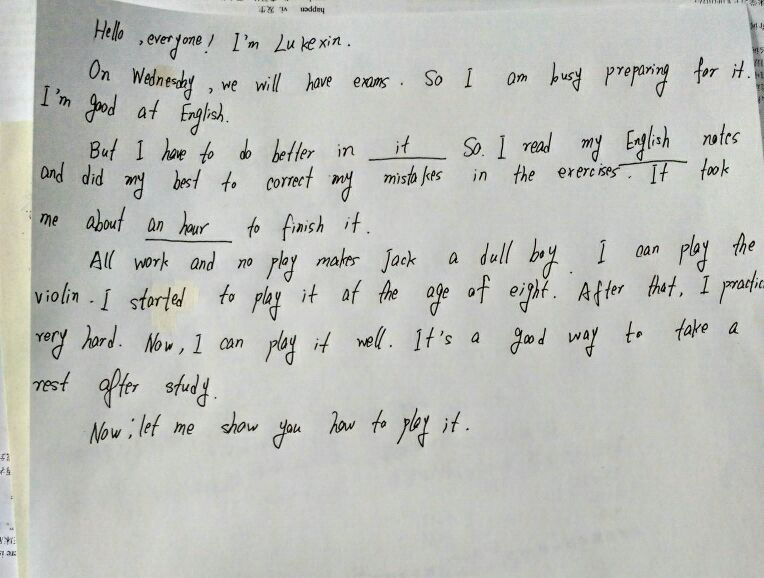 happen vt. 发生
Hello, everyone! I'm Lukexin.
On Wednesday, we will have exams. So I am busy preparing for it.
I'm good at English.
But I have to do better in it So. I read my English notes
and did my best to correct my mistakes in the exercises. It took
me about an hour to finish it.
All work and no play makes Jack a dull boy. I can play the
violin. I started to play it at the age of eight. After that, I practic
very hard. Now, I can play it well. It's a good way to take a
rest after study.
Now, let me show you how to play it.